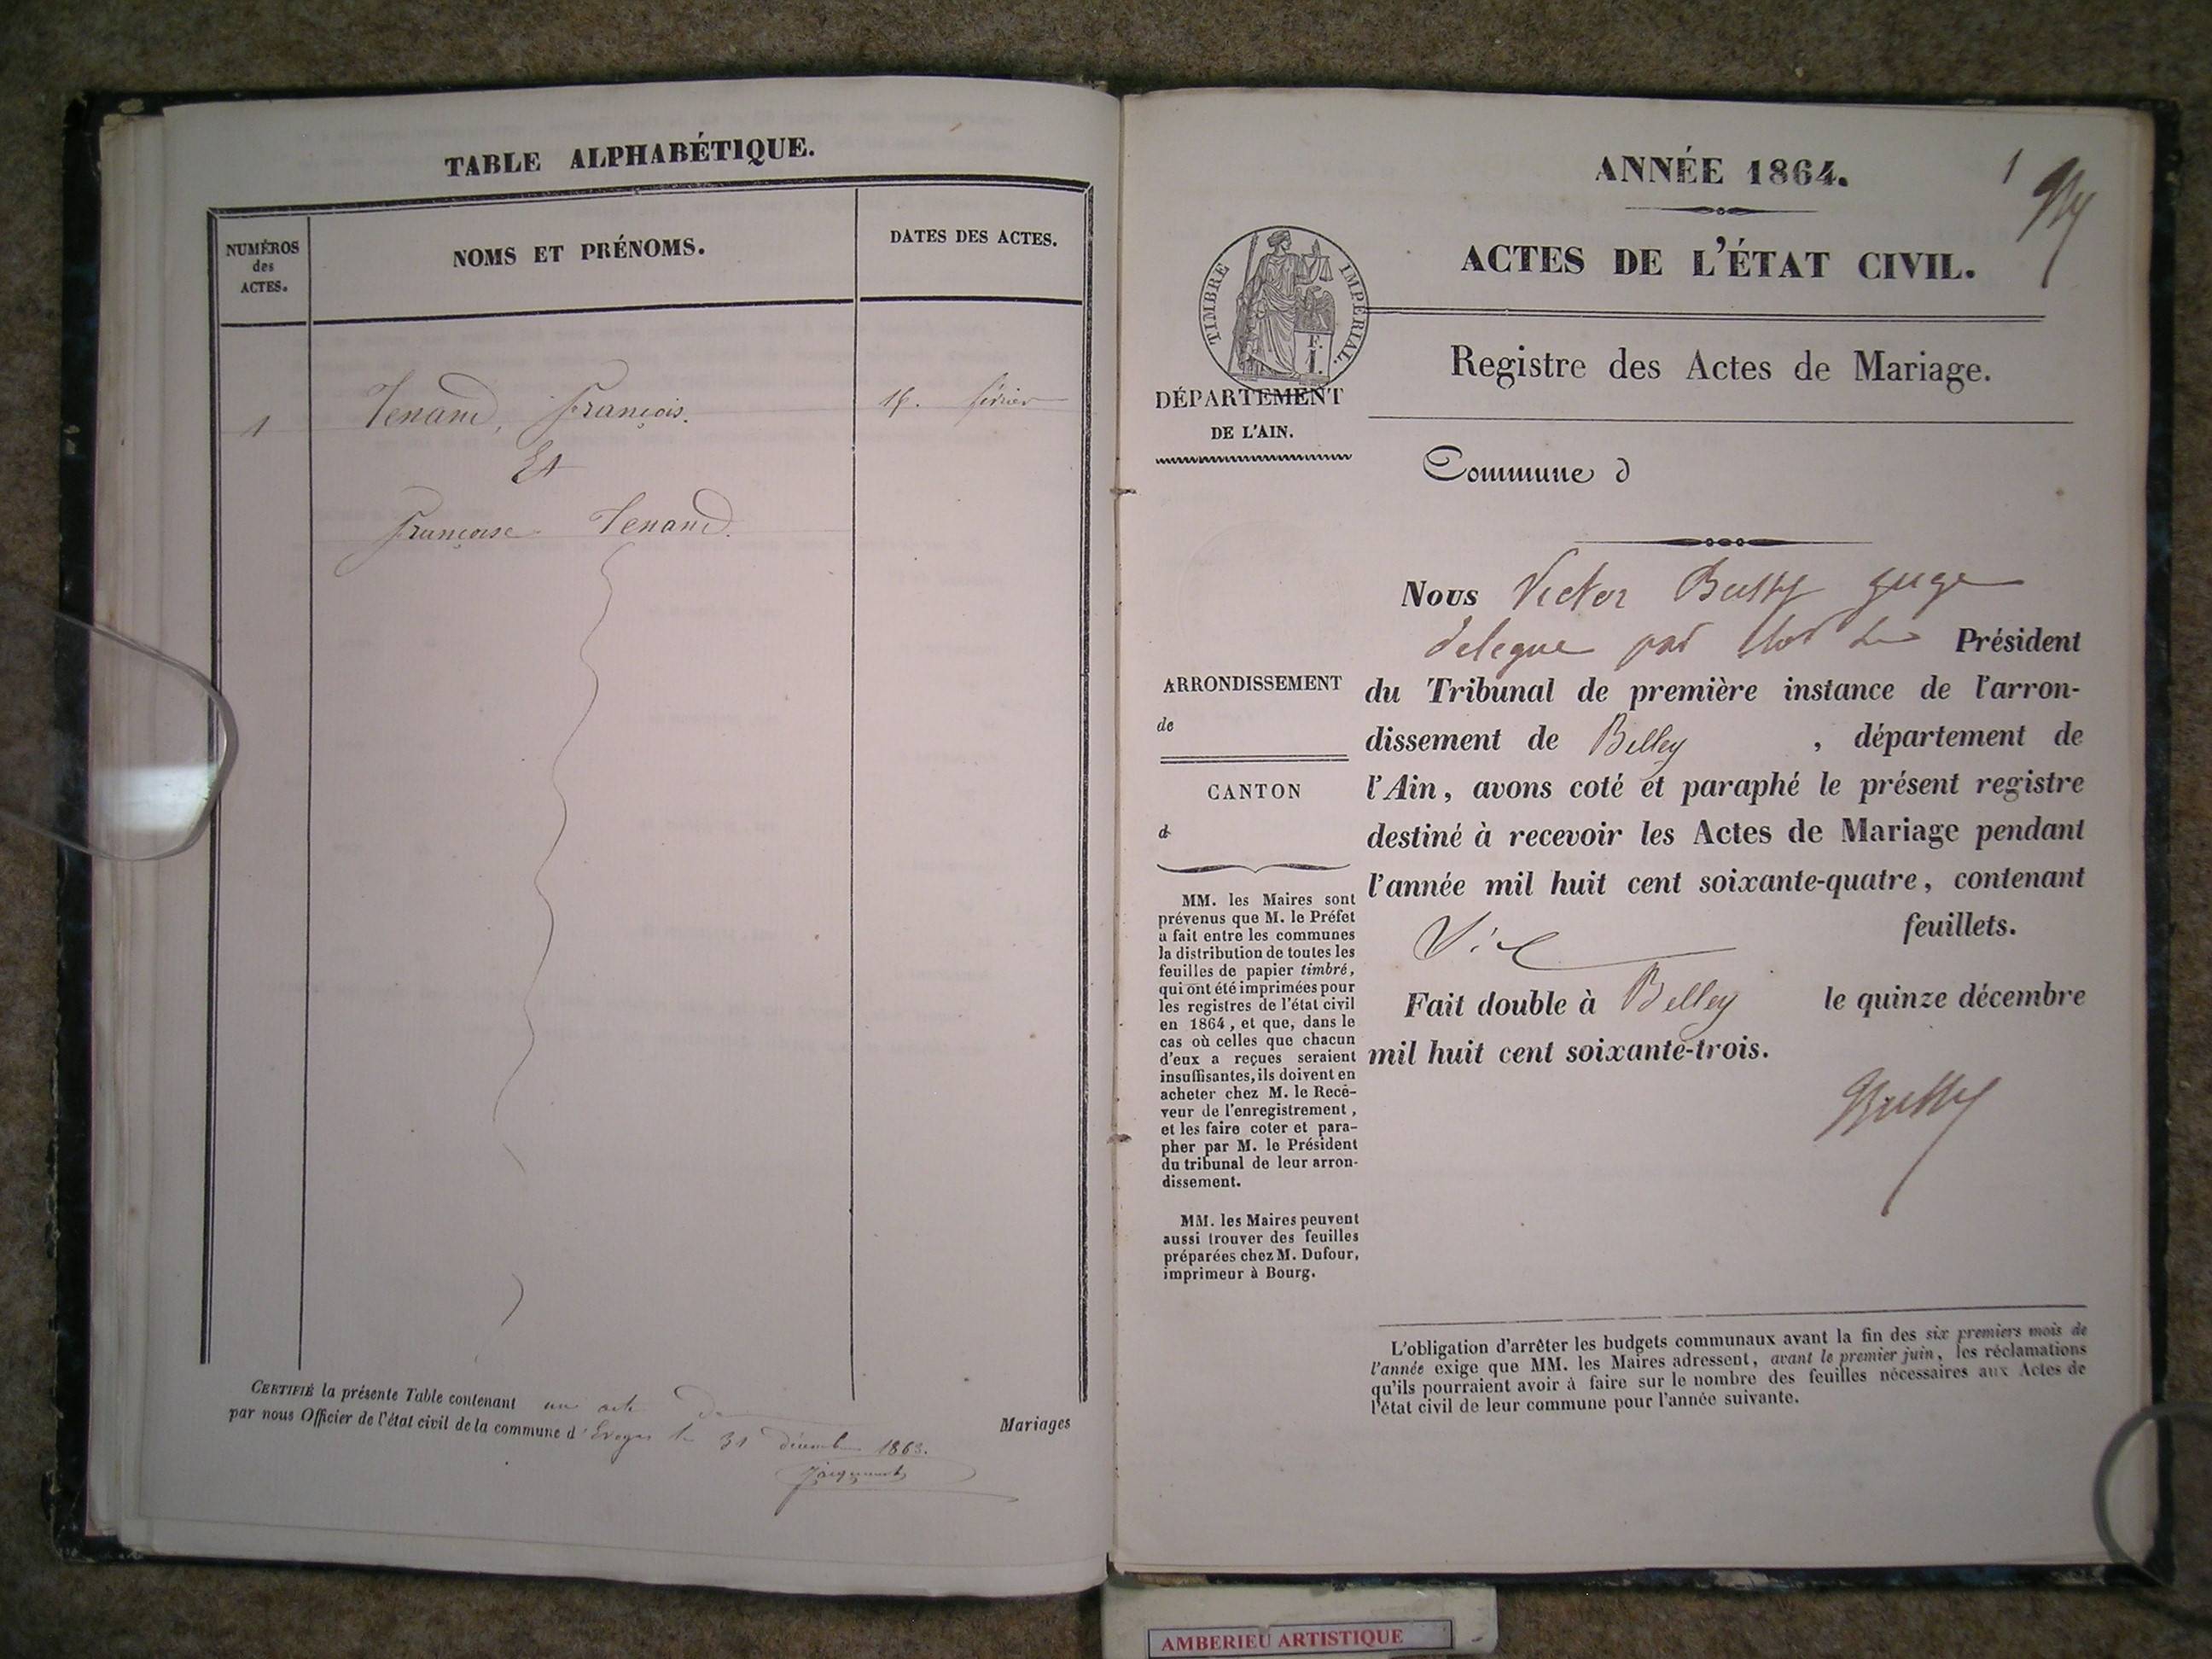 TABLE ALPHABÉTIQUE.
NUMÉROS
des
ACTES.
NOMS ET PRÉNOMS.
DATES DES ACTES.
1
Tenand, François.
février
Et
Françoise Tenand.
CERTIFIÉ la présente Table contenant un acte de
Mariages
par nous Officier de l'état civil de la commune d'Evoges le 31 décembre 1863.
Jacquemet
ANNÉE 1864.
1
ACTES DE L'ÉTAT CIVIL.
TIMBRE IMPÉRIAL.
Registre des Actes de Mariage.
DÉPARTEMENT
DE L'AIN.
Commune d
Nous Victor Bussy juge
délégué par Président
ARRONDISSEMENT
de
CANTON
d
du Tribunal de première instance de l'arron-
dissement de Belley , département de
l'Ain, avons coté et paraphé le présent registre
destiné à recevoir les Actes de Mariage pendant
l'année mil huit cent soixante-quatre, contenant
Six feuillets.
Fait double à Belley le quinze décembre
mil huit cent soixante-trois.
Bussy
MM. les Maires sont
prévenus que M. le Préfet
a fait entre les communes
la distribution de toutes les
feuilles de papier timbré,
qui ont été imprimées pour
les registres de l'état civil
en 1864, et que, dans le
cas où celles que chacun
d'eux a reçues seraient
insuffisantes, ils doivent en
acheter chez M. le Rece-
veur de l'enregistrement,
et les faire coter et para-
pher par M. le Président
du tribunal de leur arron-
dissement.
MM. les Maires peuvent
aussi trouver des feuilles
préparées chez M. Dufour,
imprimeur à Bourg.
L'obligation d'arrêter les budgets communaux avant la fin des six premiers mois de
l'année exige que MM. les Maires adressent, avant le premier juin, les réclamations
qu'ils pourraient avoir à faire sur le nombre des feuilles nécessaires aux Actes de
l'état civil de leur commune pour l'année suivante.
AMBERIEU ARTISTIQUE